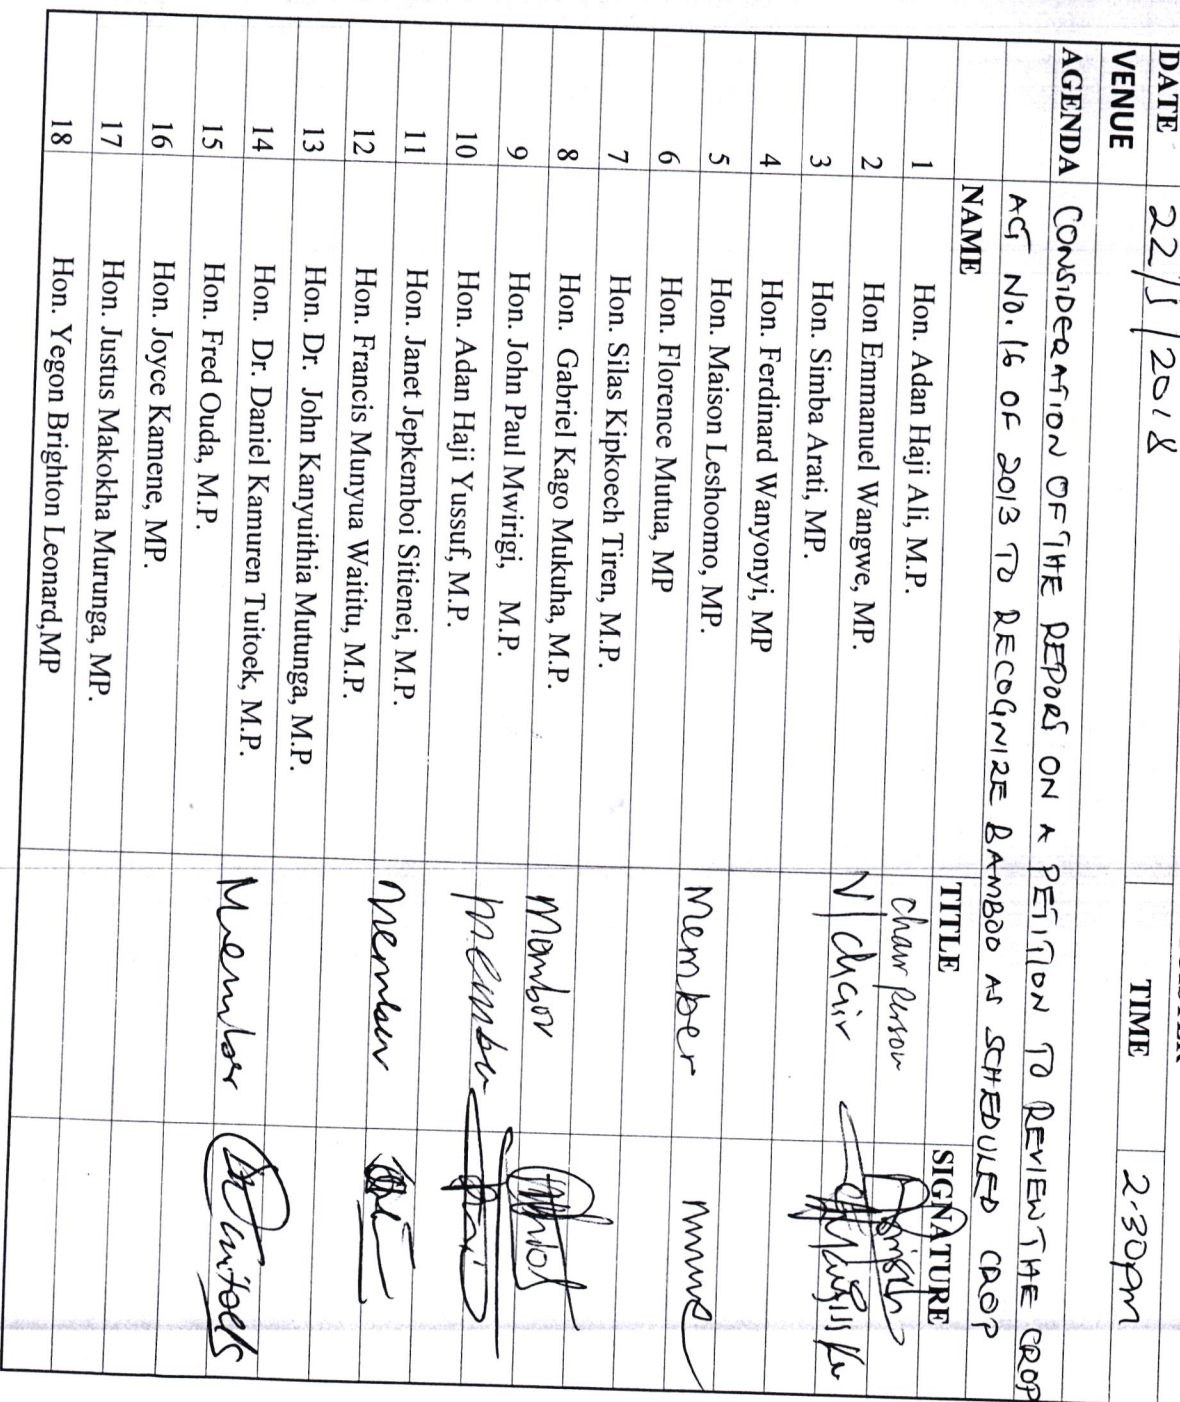 DATE 22/5/2018
VENUE TIME 2.30pm
AGENDA CONSIDERATION OF THE REPORT ON A PETITION TO REVIEW THE CROP
ACT NO. 16 OF 2013 TO RECOGNIZE BAMBOO AS SCHEDULED CROP
NAME TITLE SIGNATURE
1 Hon. Adan Haji Ali, M.P. Chair Person
2 Hon Emmanuel Wangwe, MP. V/Chair
3 Hon. Simba Arati, MP.
4 Hon. Ferdinard Wanyonyi, MP
5 Hon. Maison Leshoomo, MP. Member
6 Hon. Florence Mutua, MP
7 Hon. Silas Kipkoech Tiren, M.P.
8 Hon. Gabriel Kago Mukuha, M.P. Member
9 Hon. John Paul Mwirigi, M.P. Member
10 Hon. Adan Haji Yussuf, M.P.
11 Hon. Janet Jepkemboi Sitienei, M.P. Member
12 Hon. Francis Munyua Waititu, M.P.
13 Hon. Dr. John Kanyuithia Mutunga, M.P.
14 Hon. Dr. Daniel Kamuren Tuitoek, M.P. Member
15 Hon. Fred Ouda, M.P.
16 Hon. Joyce Kamene, MP.
17 Hon. Justus Makokha Murunga, MP.
18 Hon. Yegon Brighton Leonard,MP